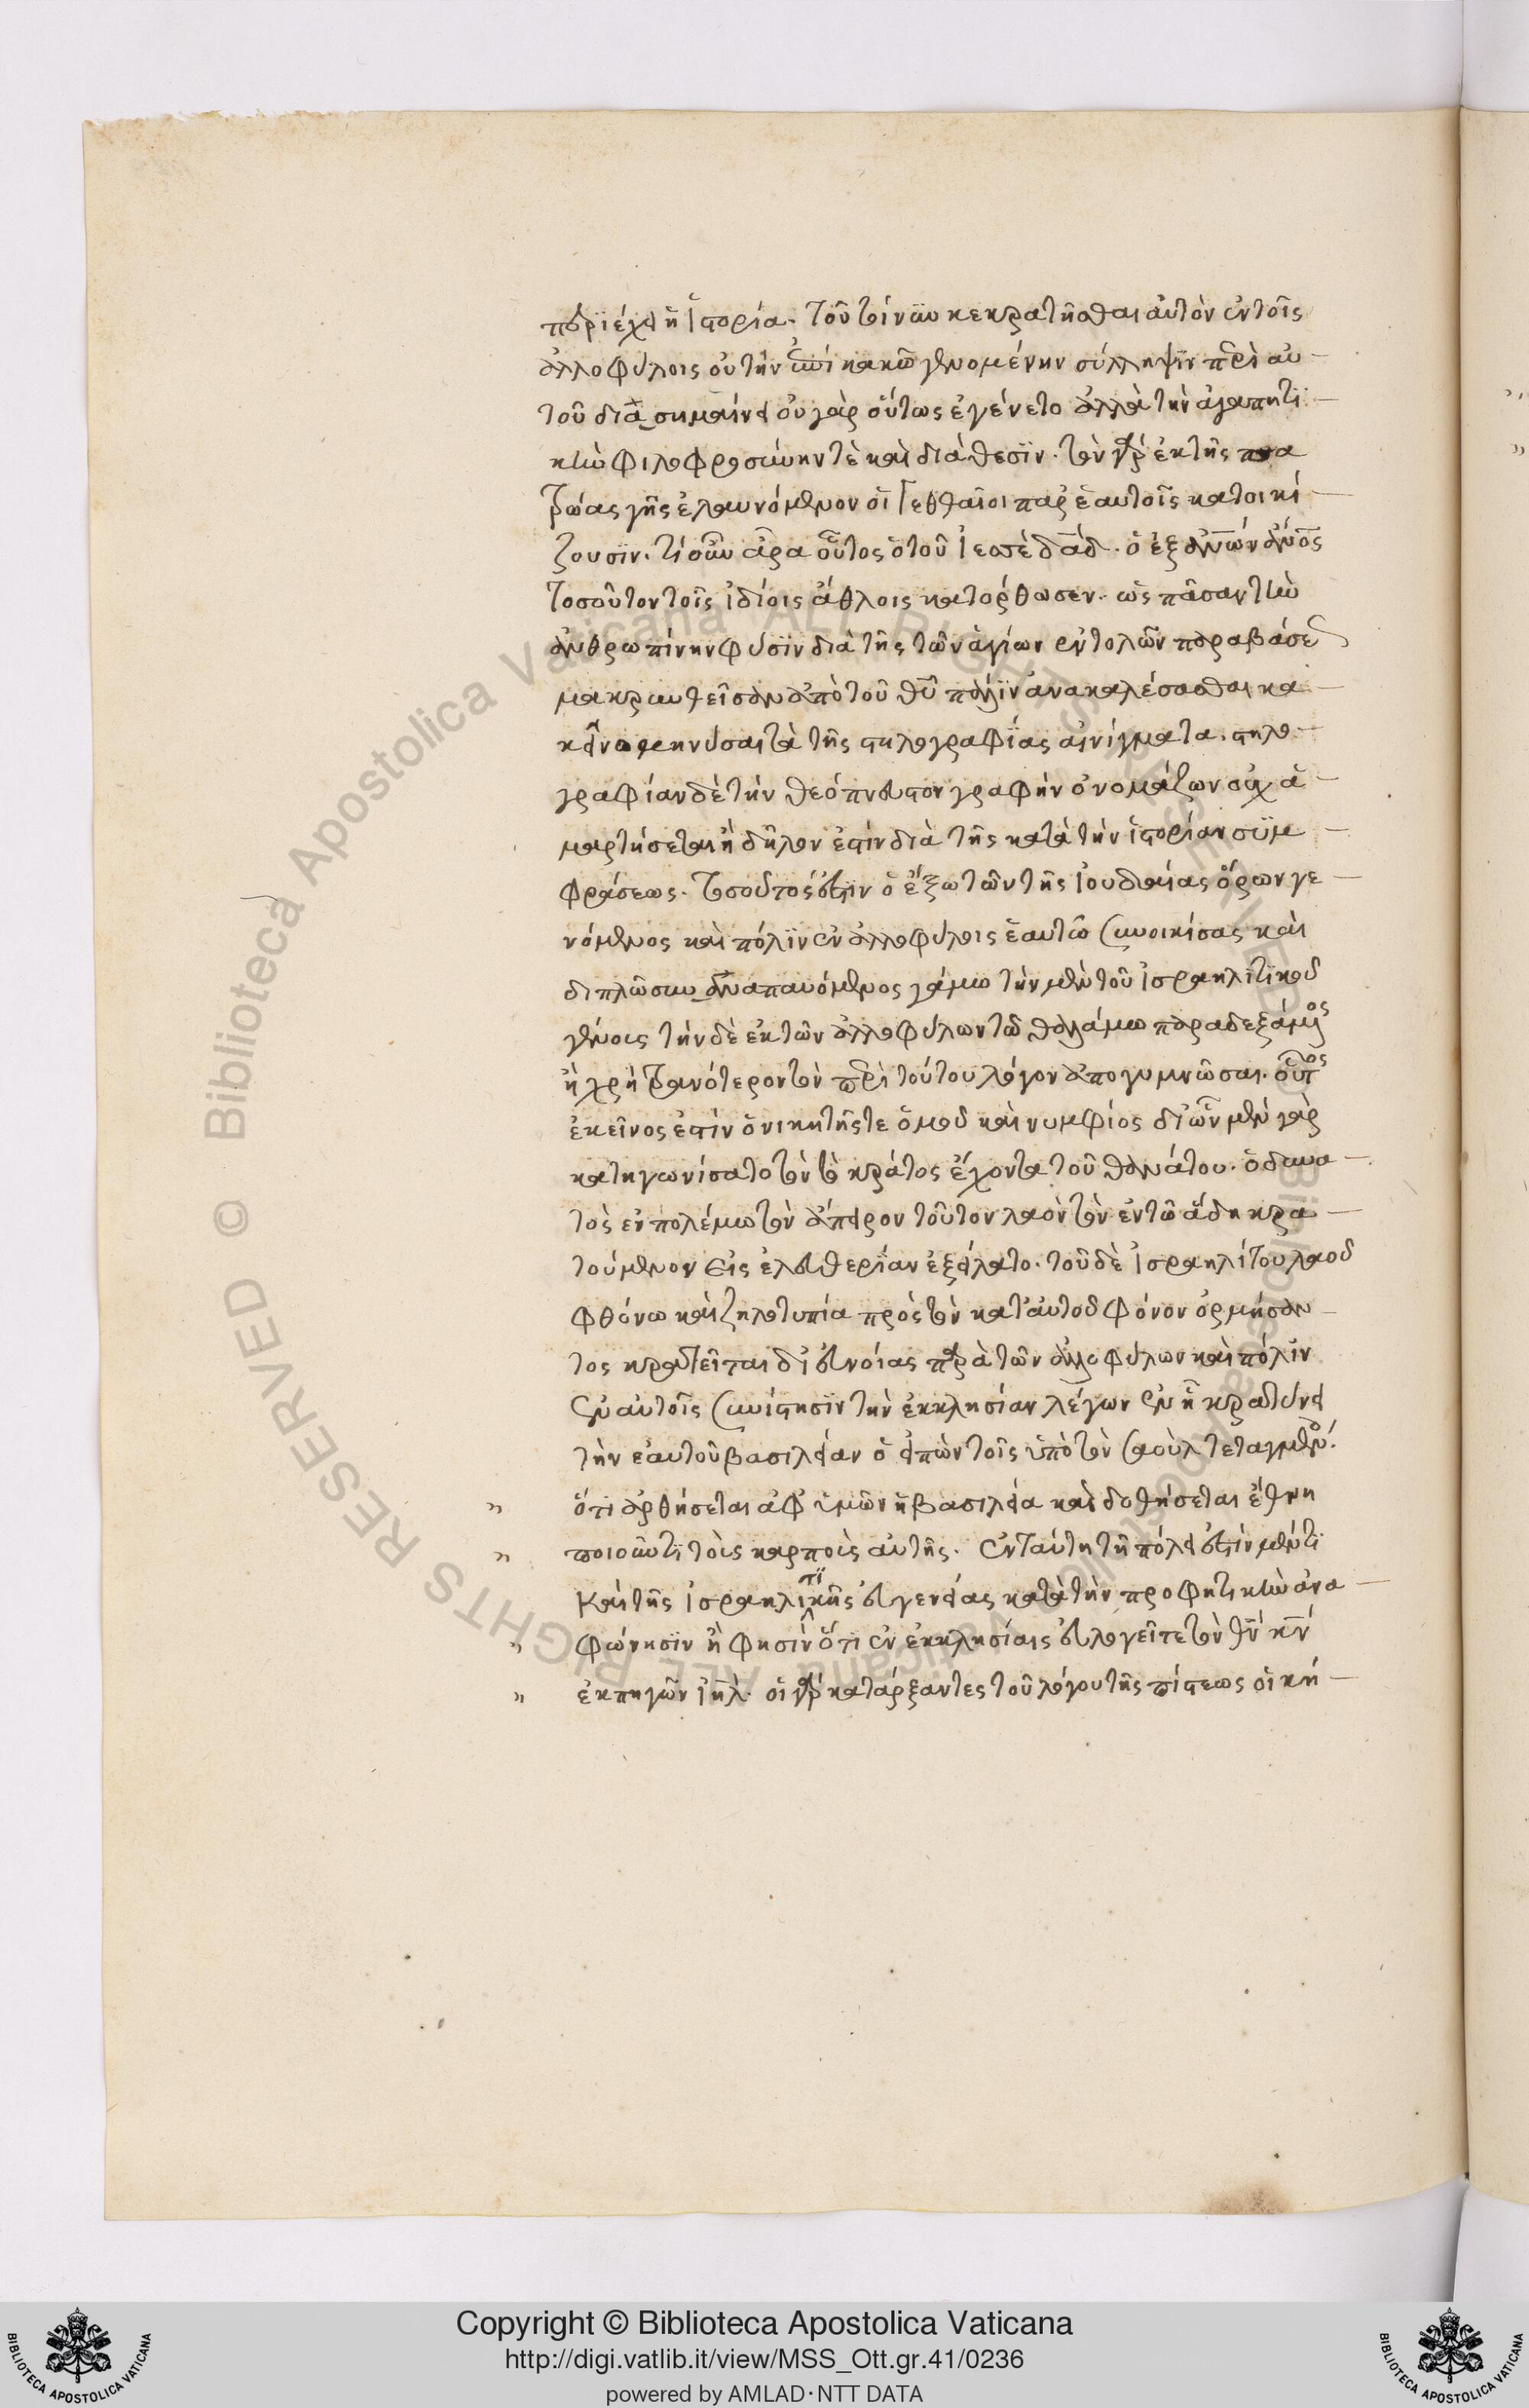 περιέχει ἡ ἱστορία. τοῦτο τοίνυν κεκρατῆσθαι αὐτὸν ἐν τοῖς
ἀλλοφύλοις οὐ τὴν ἐπὶ κακῶ γενομένην σύλληψιν περὶ αὐ
τοῦ διασημαίνει οὐ γὰρ οὕτως ἐγένετο ἀλλὰ τὴν ἀγαπητι
κὴν φιλοφροσύνην τὲ καὶ διάθεσιν. τὸν γὰρ ἐκ τῆς πα
τρώας γῆς ἐλαυνόμενον οἱ Γεθθαῖοι παρ' ἑαυτοῖς κατοικί
ζουσιν. τί οὖν ἆρα οὗτος ὁ τοῦ Ἰεσσὲ δαδ. ὁ ἐξ ανων ανος
τοσοῦτον τοῖς ἰδίοις ἄθλοις κατόρθωσεν. ὡς πᾶσαν τὴν
ἀνθρωπίνην φύσιν διὰ τῆς τῶν ἁγίων ἐντολῶν παραβάσεως
μακρυνθεῖσαν ἀπὸ τοῦ θυ πάλιν ἀνακαλέσασθαι κα
τὰ τῆς στηλογραφίας αἰνίγματα. στηλο
γραφίαν δὲ τὴν θεόπνευστον γραφὴν ὀνομάζων οὐχ ἁ
μαρτήσεται ἢ δῆλον ἐστὶν διὰ τῆς κατὰ τὴν ἱστορίαν συμ
φράσεως. τίς οὗτός ἐστιν ὁ ἔξω τῶν τῆς Ἰουδαίας ὅρων γε
νόμενος καὶ πόλιν ἐν ἀλλοφύλοις ἑαυτῶ συνοικίσας καὶ
διπλῶ συναναπαυόμενος γάμω τὴν μὲν τοῦ ἰσραηλιτικοῦ
γένους τὴν δὲ ἐκ τῶν ἀλλοφύλων τῶ θαλάμω παραδεξάμενος
ἢ χρὴ τρανότερον τὸν περὶ τούτου λόγον ἀπογυμνῶσαι. οὗτος
ἐκεῖνος ἐστὶν ὁ νικητής τε ὁμοῦ καὶ νυμφίος δι' ὧν μὲν γὰρ
κατηγωνίσατο τὸν τὸ κράτος ἔχοντα τοῦ θανάτου. ὁ δυνα
τὸς ἐν πολέμω τὸν ἄπειρον τοῦτον λαὸν τὸν ἐν τῶ ἅδη κρα
τούμενον εἰς ἐλευθερίαν ἐξείλατο. τοῦ δὲ Ἰσραηλίτου λαοῦ
φθόνω καὶ ζηλοτυπία πρὸς τὸν κατ' αὐτοῦ φόνον ὁρμήσαν
τος κρατεῖται δι' εὐνοίας παρὰ τῶν ἀλλοφύλων καὶ πόλιν
ἐν αὐτοῖς συνίστησιν τὴν ἐκκλησίαν λέγων ἐν ἧ κρατύνει
τὴν ἑαυτοῦ βασιλείαν ὁ εἰπὼν τοῖς ὑπὸ τὸν Σαοὺλ τεταγμένοις
ὅτι ἀρθήσεται ἀφ' ὑμῶν ἡ βασιλεία καὶ δοθήσεται ἔθνη
ποιοῦντι τοὺς καρποὺς αὐτῆς. ἐν ταύτη τῆ πόλει ἐστὶν μέν τι
καὶ τῆς ἰσραηλιτικῆς εὐγενείας κατὰ τὴν προφητικὴν ἀνα
φώνησιν ἥ φησιν ὅτι ἐν ἐκκλησίαις εὐλογεῖτε τὸν θν κν
ἐκ πηγῶν ιηλ. οἱ γὰρ κατάρξαντες τοῦ λόγου τῆς πίστεως οἱ κή